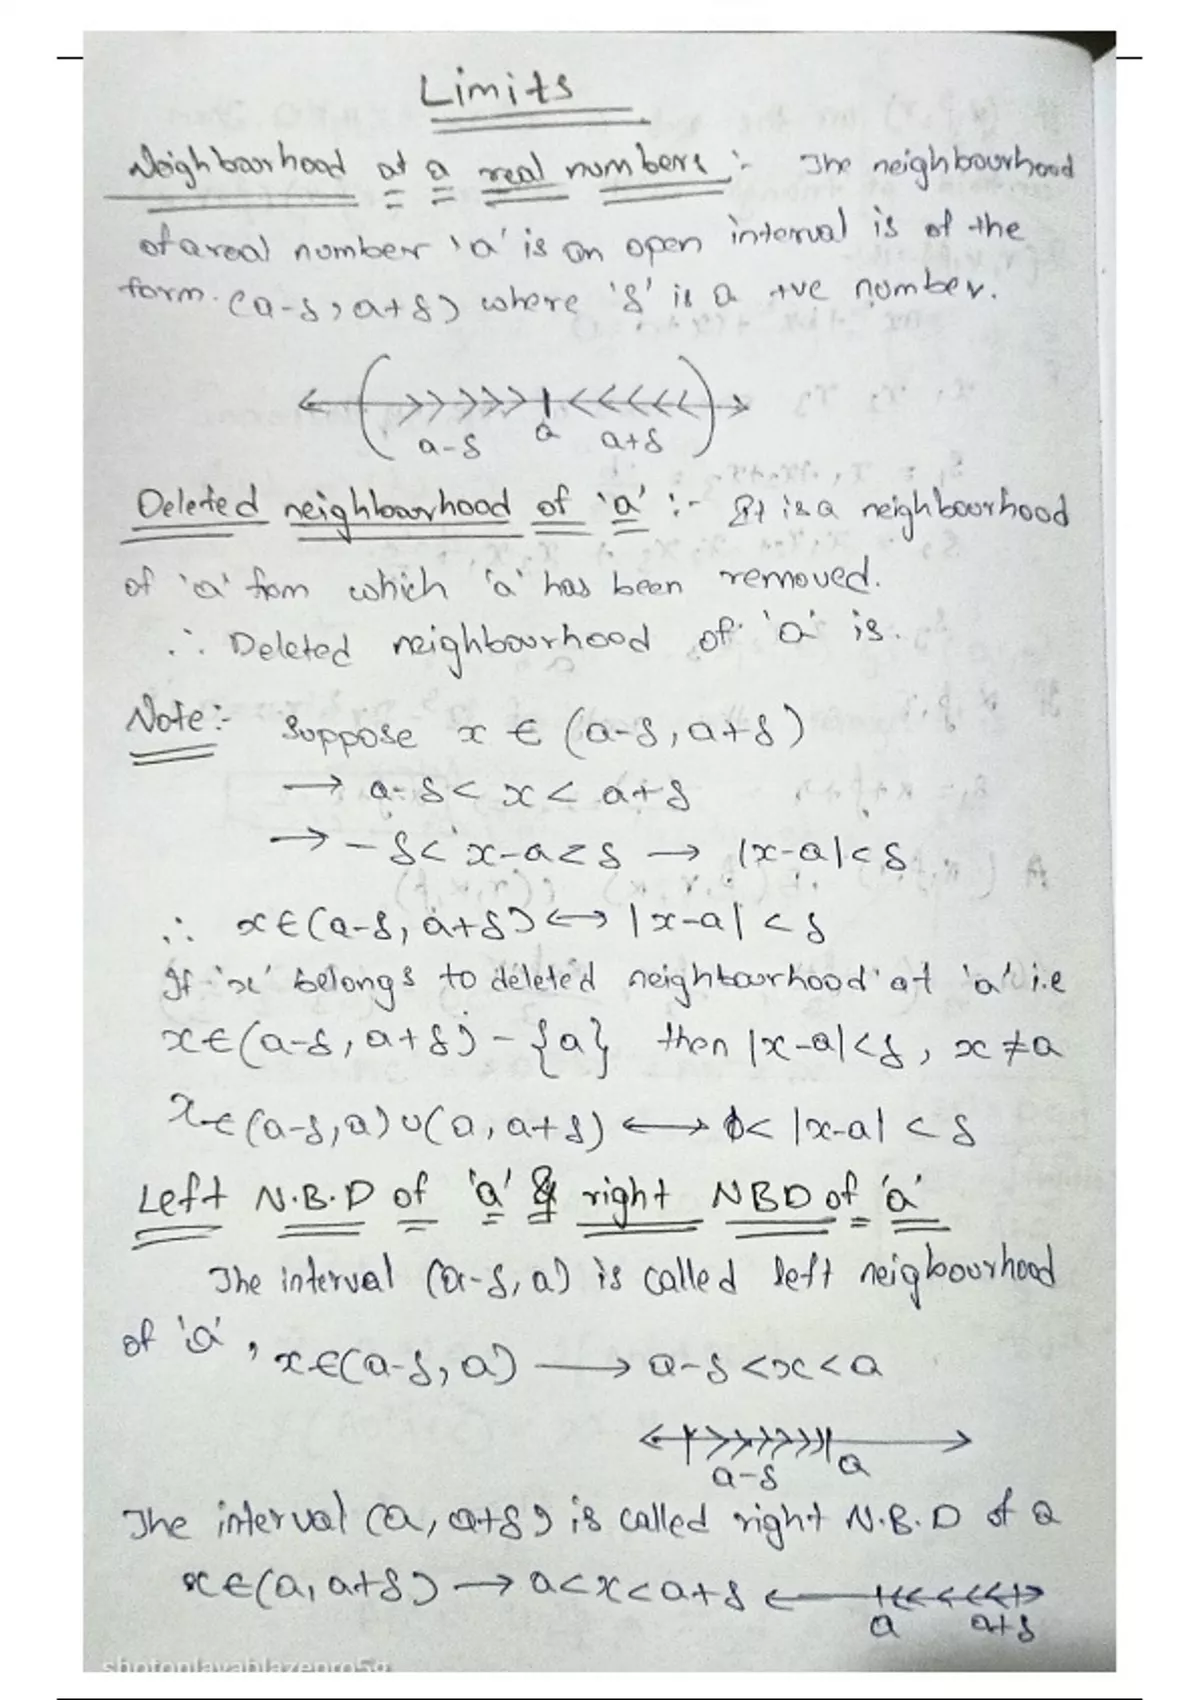 Limits
Neighbourhood at a real numbers :- The neighbourhood
of a real number 'a' is an open interval is of the
form. (a-δ, a+δ) where 'δ' is a +ve number.
a-δ a a+δ
Deleted neighbourhood of 'a' :- It is a neighbourhood
of 'a' from which 'a' has been removed.
∴ Deleted neighbourhood of 'a' is.
Note:- Suppose x ∈ (a-δ, a+δ)
→ a-δ < x < a+δ
→ -δ < x-a < δ → |x-a| < δ
∴ x∈(a-δ, a+δ) ↔ |x-a| < δ
If 'x' belongs to deleted neighbourhood at 'a' i.e
x∈(a-δ, a+δ) - {a} then |x-a|<δ, x≠a
x∈(a-δ,a)∪(a, a+δ) ↔ 0< |x-a| < δ
Left N.B.D of 'a' & right NBD of 'a'
The interval (a-δ, a) is called left neigbourhood
of 'a', x∈(a-δ, a) → a-δ <x<a
a-δ a
The interval (a, a+δ) is called right N.B.D of a
x∈(a, a+δ) → a<x<a+δ
a a+δ